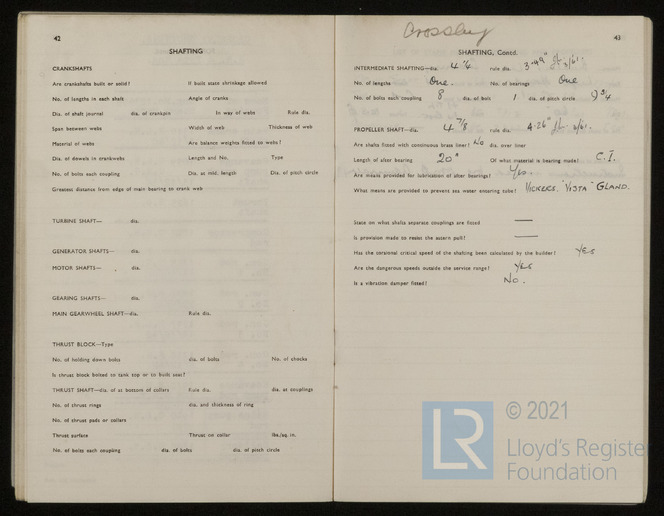 42
SHAFTING
CRANKSHAFTS
Are crankshafts built or solid? If built state shrinkage allowed
No. of lengths in each shaft Angle of cranks
Dia. of shaft journal dia. of crankpin In way of webs Rule dia.
Span between webs Width of web Thickness of web
Material of webs Are balance weights fitted to webs?
Dia. of dowels in crankwebs Length and No. Type
No. of bolts each coupling Dia. at mid. length Dia. of pitch circle
Greatest distance from edge of main bearing to crank web
TURBINE SHAFT— dia.
GENERATOR SHAFTS— dia.
MOTOR SHAFTS— dia.
GEARING SHAFTS— dia.
MAIN GEARWHEEL SHAFT—dia. Rule dia.
THRUST BLOCK—Type
No. of holding down bolts dia. of bolts No. of chocks
Is thrust block bolted to tank top or to built seat?
THRUST SHAFT—dia. of at bottom of collars Rule dia. dia. at couplings
No. of thrust rings dia. and thickness of ring
No. of thrust pads or collars
Thrust surface Thrust on collar lbs./sq. in.
No. of bolts each coupling dia. of bolts dia. of pitch circle
Crossley
43
SHAFTING, Contd.
INTERMEDIATE SHAFTING—dia. 4 1/4 rule dia. 3.99"
No. of lengths One. No. of bearings One
No. of bolts each coupling 8 dia. of bolt 1 dia. of pitch circle 9 3/4
PROPELLER SHAFT—dia. 4 7/8 rule dia. 4.26"
Are shafts fitted with continuous brass liner? No dia. over liner
Length of after bearing 20" Of what material is bearing made? C.I.
Are means provided for lubrication of after bearings? Yes
What means are provided to prevent sea water entering tube? VICKERS. "VISTA" GLAND.
State on what shafts separate couplings are fitted —
Is provision made to resist the astern pull? —
Has the torsional critical speed of the shafting been calculated by the builder? YES
Are the dangerous speeds outside the service range? YES
Is a vibration damper fitted? No.
LR
© 2021
Lloyd's Register
Foundation